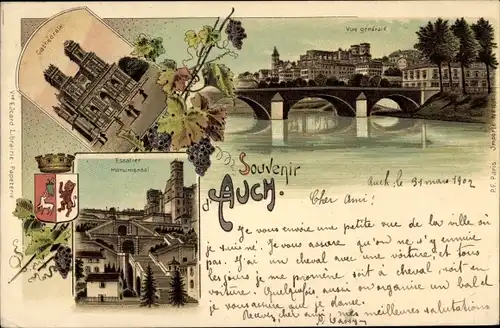 Cathédrale
Vue générale
Vve E. Jcard Librairie Papeterie
Escalier
Monumental
Souvenir
d'AUCH.
P.F. Paris
Auch, le 31 mars 1902
Cher Ami!
Je vous envoie une petite vue de la ville où
je suis né. Je vous assure qu'on ne s'y ennuie
pas. J'ai un cheval avec une voiture, et tous
les jours je me promène soit à cheval soit en
voiture. Quelquefois aussi on organise un bal et
je vous assure que je danse.
Recevez, cher ami, mes meilleures salutations